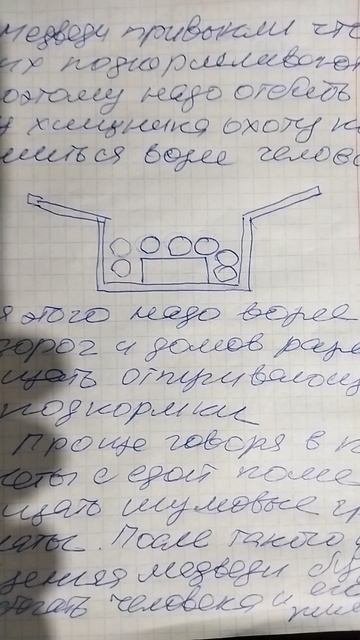 медведи привыкли что
их подкармливают
поэтому надо отбить
у хищника охоту к
миться возле челове
я этого надо возле
дорог и домов разм
щать отпугивающ
подкормки
Проще говоря в п
кеты с едой поме
щать шумовые гр
наты. После такого
щения медведи бу
человека и его